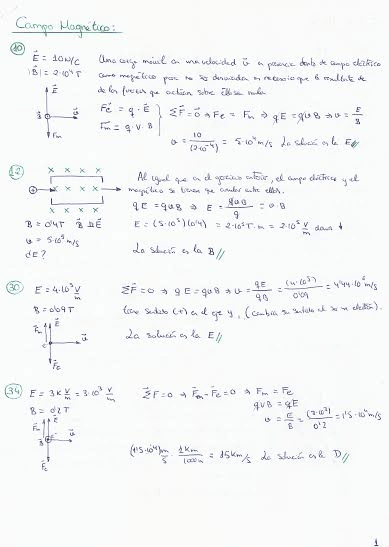 Campo Magnético:
10 E = 10 N/C Una carga móvil en una velocidad v dentro de campo eléctrico
|B| = 2·10⁻⁴ T como magnético para no ser desviada es necesario que la resultante
de las fuerzas que actúan sobre ella sea nula
Fe = q·E ΣF = 0 ⇒ Fe = Fm ⇒ qE = qvB ⇒ v = E/B
Fm = q·v·B
v = 10/(2·10⁻⁴) = 5·10⁴ m/s La solución es la E //
12 Al igual que en el ejercicio anterior, el campo eléctrico y el
magnético se tienen que anular entre ellos.
qE = qvB ⇒ E = qvB/q = v·B
B = 0'4 T B ⊥ E E = (5·10⁵)(0'4) = 2·10⁵ T·m = 2·10⁵ V/m
v = 5·10⁵ m/s
¿E? La solución es la B //
30 E = 4·10⁵ V/m ΣF = 0 ⇒ qE = qvB ⇒ v = qE/qB = (4·10⁵)/0'09 = 4'44·10⁶ m/s
B = 0'09 T tiene sentido (+) en el eje y, (cambia su sentido al ser electrón).
La solución es la E //
34 E = 3 KV/m = 3·10³ V/m ΣF = 0 ⇒ Fm - Fe = 0 ⇒ Fm = Fe
B = 0'2 T qvB = qE
v = E/B = (3·10³)/0'2 = 1'5·10⁴ m/s
(1'5·10⁴) m/s · 1Km/1000m = 15 Km/s La solución es la D //
1